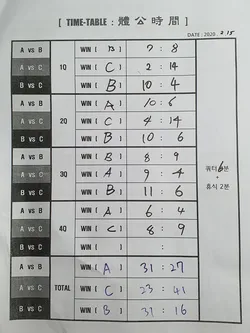 [ TIME-TABLE : 體公時間 ]
DATE : 2020. 2.15
A vs B 1Q WIN [ B ] 7 : 8
A vs C WIN [ C ] 2 : 14
B vs C WIN [ B ] 10 : 4
A vs B 2Q WIN [ A ] 10 : 6
A vs C WIN [ C ] 4 : 14
B vs C WIN [ B ] 10 : 6
A vs B 3Q WIN [ B ] 8 : 9
A vs C WIN [ A ] 9 : 4
B vs C WIN [ B ] 11 : 6
A vs B 4Q WIN [ A ] 6 : 4
A vs C WIN [ C ] 8 : 9
B vs C WIN [ ] :
A vs B TOTAL WIN [ A ] 31 : 27
A vs C WIN [ C ] 23 : 41
B vs C WIN [ B ] 31 : 16
쿼터 6분
+
휴식 2분